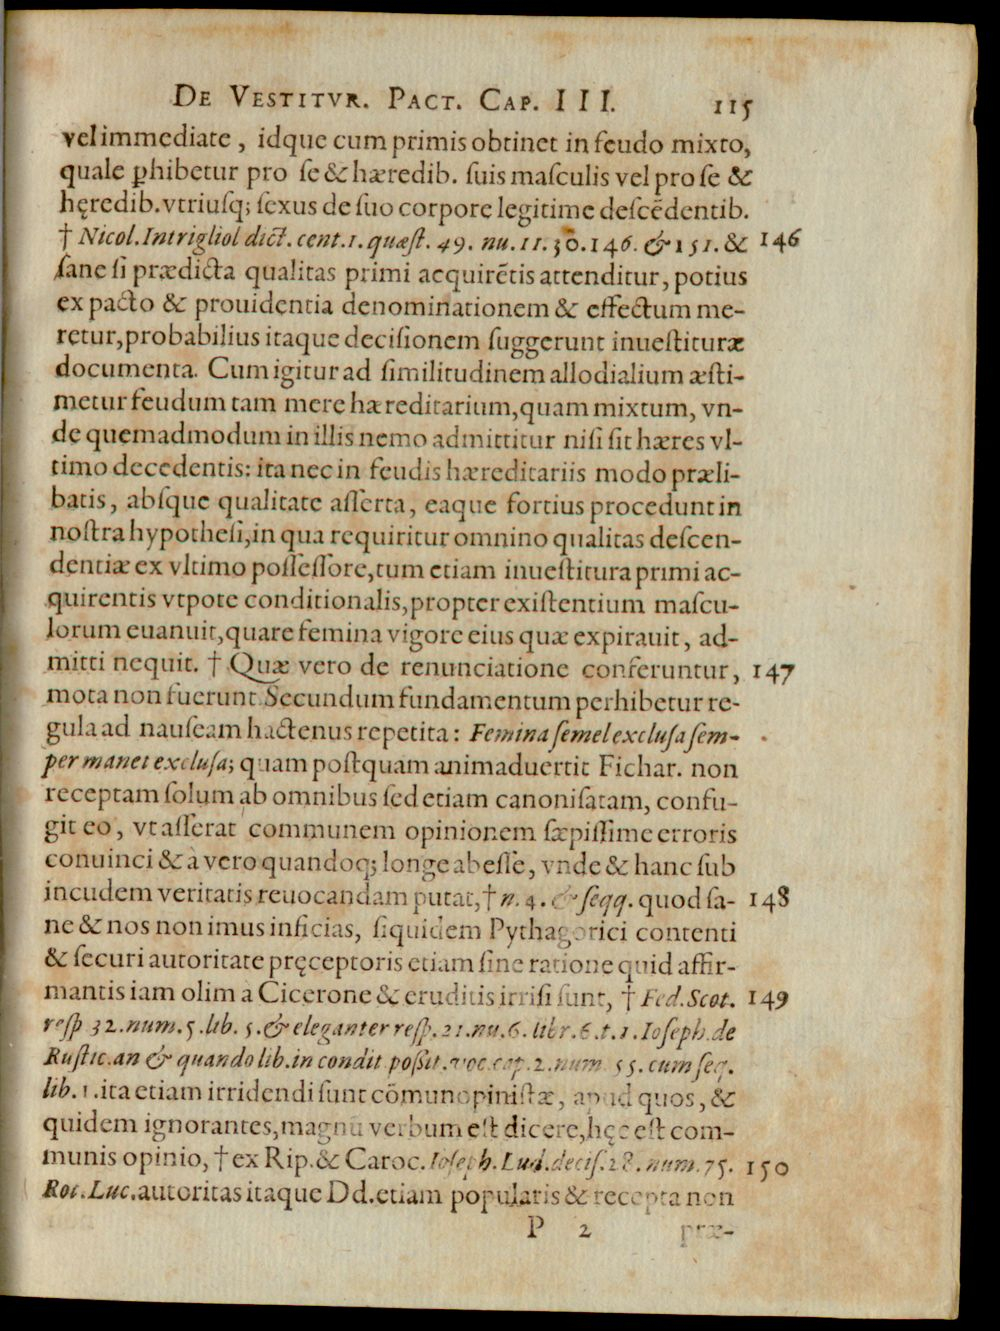 De Vestitvr. Pact. Cap. III. 115
vel immediate, idque cum primis obtinet in feudo mixto,
quale ꝑhibetur pro se & hæredib. suis masculis vel pro se &
hęredib. vtriusq; sexus de suo corpore legitime descēdentib.
† Nicol. Intrigliol dict. cent. 1. quæst. 49. nu. 11. 30. 146. & 151. & 146
sane si prædicta qualitas primi acquirētis attenditur, potius
ex pacto & prouidentia denominationem & effectum me-
retur, probabilius itaque decisionem suggerunt inuestituræ
documenta. Cum igitur ad similitudinem allodialium æsti-
metur feudum tam mere hæreditarium, quam mixtum, vn-
de quemadmodum in illis nemo admittitur nisi sit hæres vl-
timo decedentis: ita nec in feudis hæreditariis modo præli-
batis, absque qualitate asserta, eaque fortius procedunt in
nostra hypothesi, in qua requiritur omnino qualitas descen-
dentiæ ex vltimo possessore, tum etiam inuestitura primi ac-
quirentis vtpote conditionalis, propter existentium mascu-
lorum euanuit, quare femina vigore eius quæ expirauit, ad-
mitti nequit. † Quæ vero de renunciatione conferuntur, 147
mota non fuerunt Secundum fundamentum perhibetur re-
gula ad nauseam hactenus repetita: Femina semel exclusa sem-
per manet exclusa; quam postquam animaduertit Fichar. non
receptam solum ab omnibus sed etiam canonisatam, confu-
git eo, vt asserat communem opinionem sæpissime erroris
conuinci & à vero quandoq; longe abesse, vnde & hanc sub
incudem veritatis reuocandam putat, † n. 4. & seqq. quod sa- 148
ne & nos non imus inficias, siquidem Pythagorici contenti
& securi autoritate pręceptoris etiam sine ratione quid affir-
mantis iam olim à Cicerone & eruditis irrisi sunt, † Fed. Scot. 149
resp 32. num. 5. lib. 5. & eleganter resp. 21. nu. 6. libr. 6. t. 1. Ioseph. de
Rustic. an & quando lib. in condit possit. voc. cap. 2. num 55. cum seq.
lib. 1. ita etiam irridendi sunt cōmunopinistæ, apud quos, &
quidem ignorantes, magnū verbum est dicere, hęc est com-
munis opinio, † ex Rip. & Caroc. Ioseph. Lud. decis. 28. num. 75. 150
Rot. Luc. autoritas itaque Dd. etiam popularis & recepta non
P 2 præ-